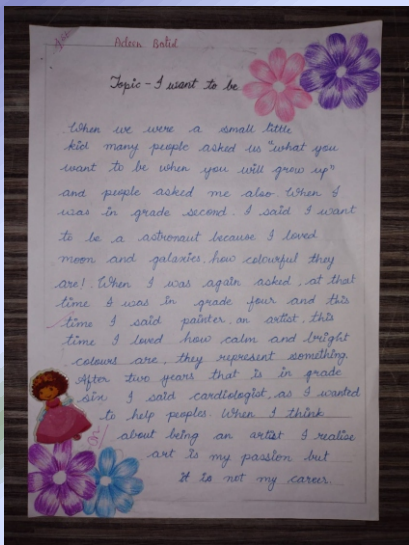 Adeen Batul
Topic - I want to be
When we were a small little
kid many people asked us "what you
want to be when you will grow up"
and people asked me also. When I
was in grade second. I said I want
to be a astronaut because I loved
moon and galaxies, how colourful they
are! When I was again asked, at that
time I was in grade four and this
time I said painter, an artist, this
time I loved how calm and bright
colours are, they represent something.
After two years that is in grade
six I said cardiologist, as I wanted
to help peoples. When I think
about being an artist I realise
art is my passion but
it is not my career.